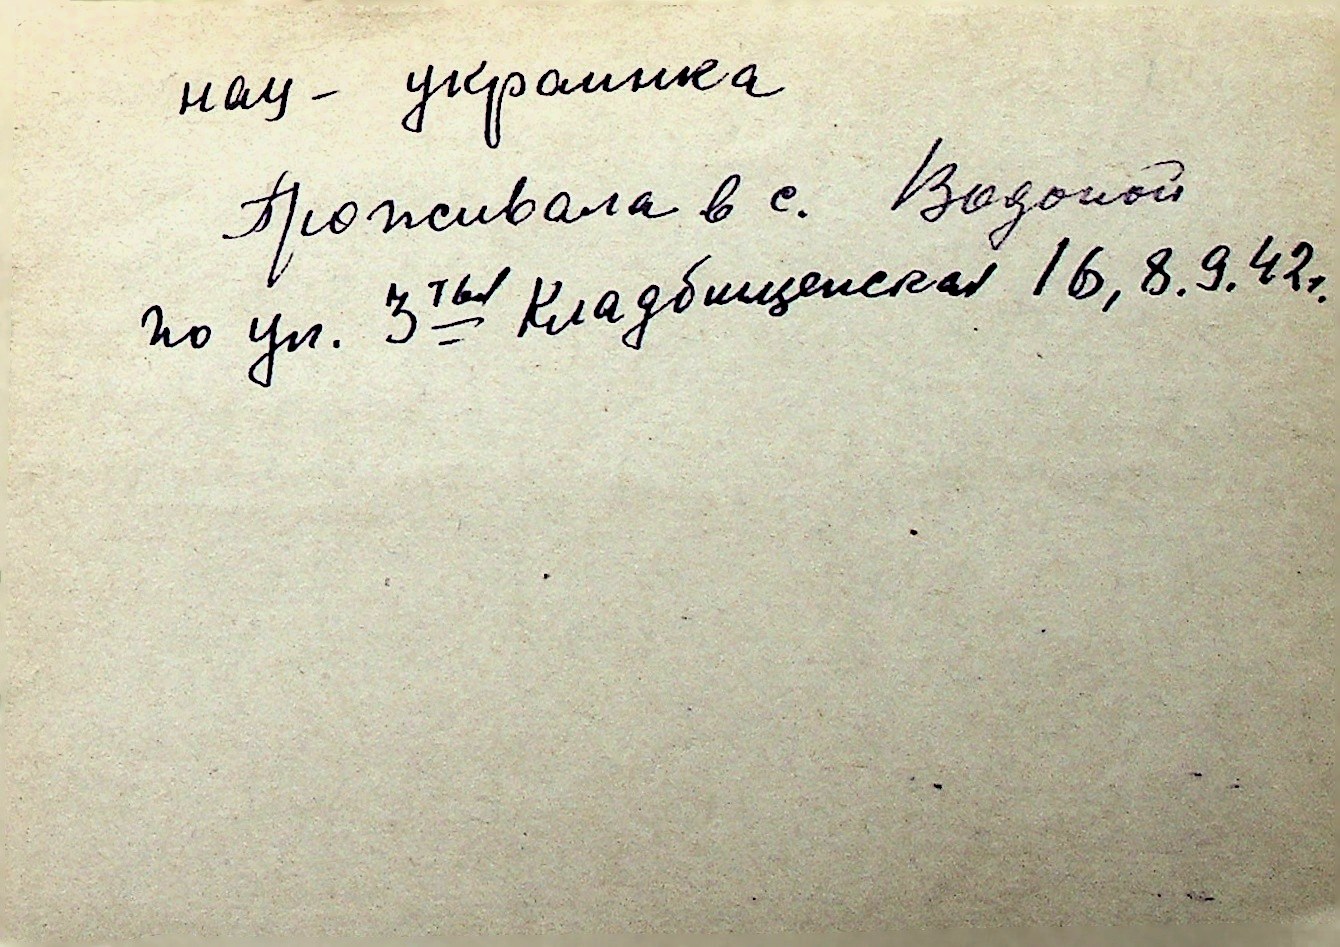 нац – украинка
Проживала в с. Водопой
по ул. 3тья Кладбищенская 16, 8.9.42г.